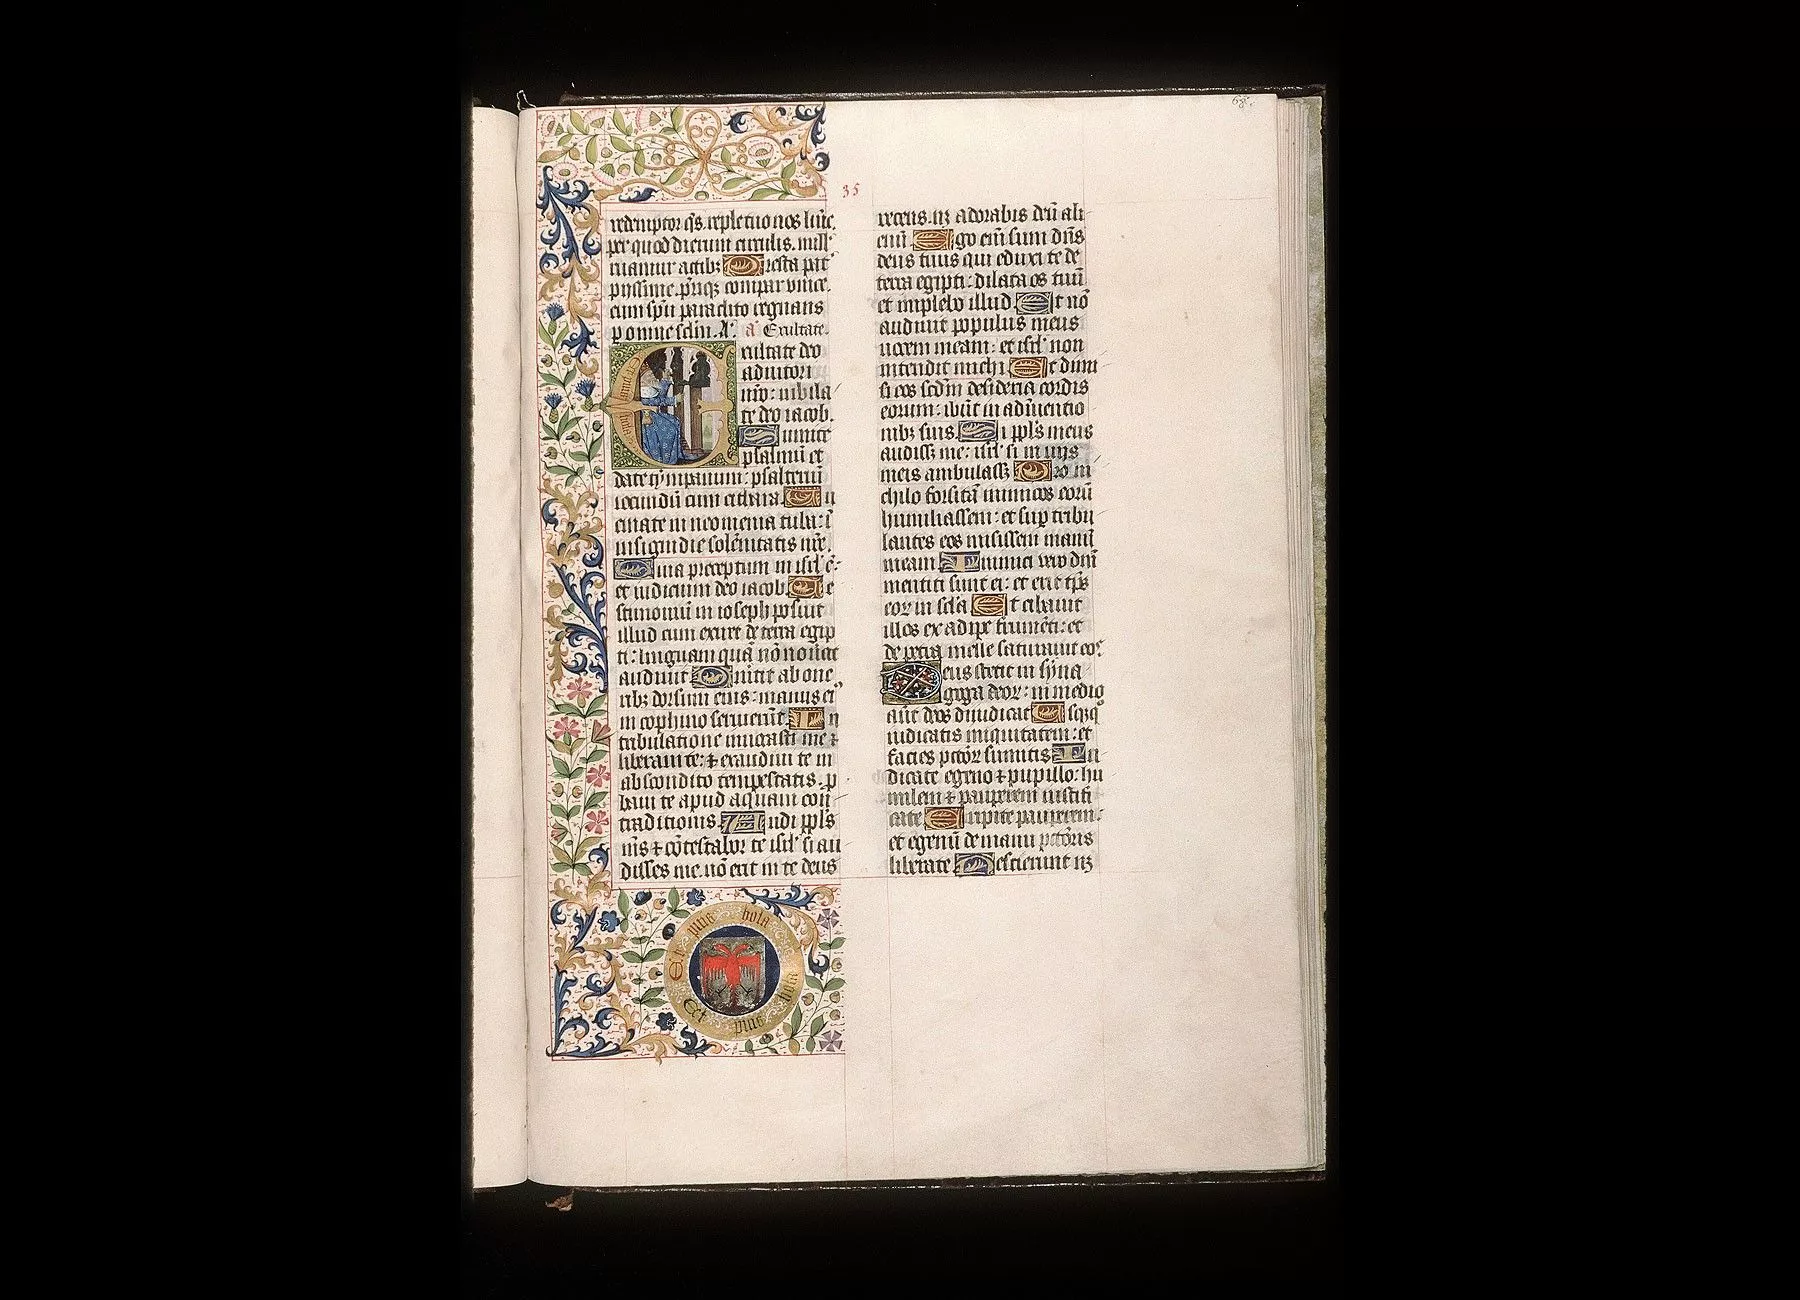 68.
35
redemptor qs. repletuo nos lu̅ie
per quod dictum circulis.
mamur actibz Presta pat̅
pijssime. pr̅iqz compar unice.
cum sp̅u paraclito regnans
p omne sclm. A. a̅ Exultate.
Exultate deo
adiutori
nr̅o: iubila
te deo iacob.
Sumite
psalmu̅ et
date tympanum: psalteriu̅
iocundu̅ cum cithara. Bu
cinate in neomenia tuba: i̅
insigni die solenitatis nr̅e.
Quia preceptum in isrl̅ e̅:
et iudicium deo iacob. Te
stimoniu̅ in ioseph posuit
illud cum exiret de terra egip
ti: linguam qua̅ no̅ nouat
audiuit Diuitit ab one
ribz dorsum eius: manus ei9
in cophino seruieru̅t. In
tribulatione inuocasti me ⁊
liberaui te: ⁊ exaudiui te in
abscondito tempestatis. p
baui te apud aquam con̅
tradictionis. Audi ppl̅s
m̅s ⁊ co̅testabor te isrl̅ si au
disses me. no̅ erit in te deus
recens. nz adorabis deu̅ ali
enu̅ Ego em̅ sum dn̅s
deus tuus qui eduxi te de
terra egipti: dilata os tuu̅
et implebo illud Et no̅
audiuit populus meus
uocem meam: et isrl̅ non
intendit michi Et dimi
si eos scdm desideria cordis
eorum: ibu̅t in adiuentio
nibz suis. Si ppl̅s meus
audiss; me: isrl̅ si in uijs
meis ambulass; Pro ni
chilo forsita̅ inimicos eoru̅
humiliassem: et sup tribu
lantes eos misissem manu̅
meam Inimici vero dn̅i
mentiti sunt ei: et erit tp̅s
eoꝝ in scl̅a Et cibauit
illos ex adipe frume̅ti: et
de petra melle saturauit eos
Deus stetit in syna
goga deoꝝ: in medio
aut̅ deos diiudicat
iudicatis iniquitatem: et
facies pctoꝝ sumitis Iu
dicate egeno ⁊ pupillo: hu
milem ⁊ pauperem iustifi
cate Eripite pauperem:
et egenu̅ de manu pctoris
liberate Nescierunt nz
Et plus hola
Et plus hola